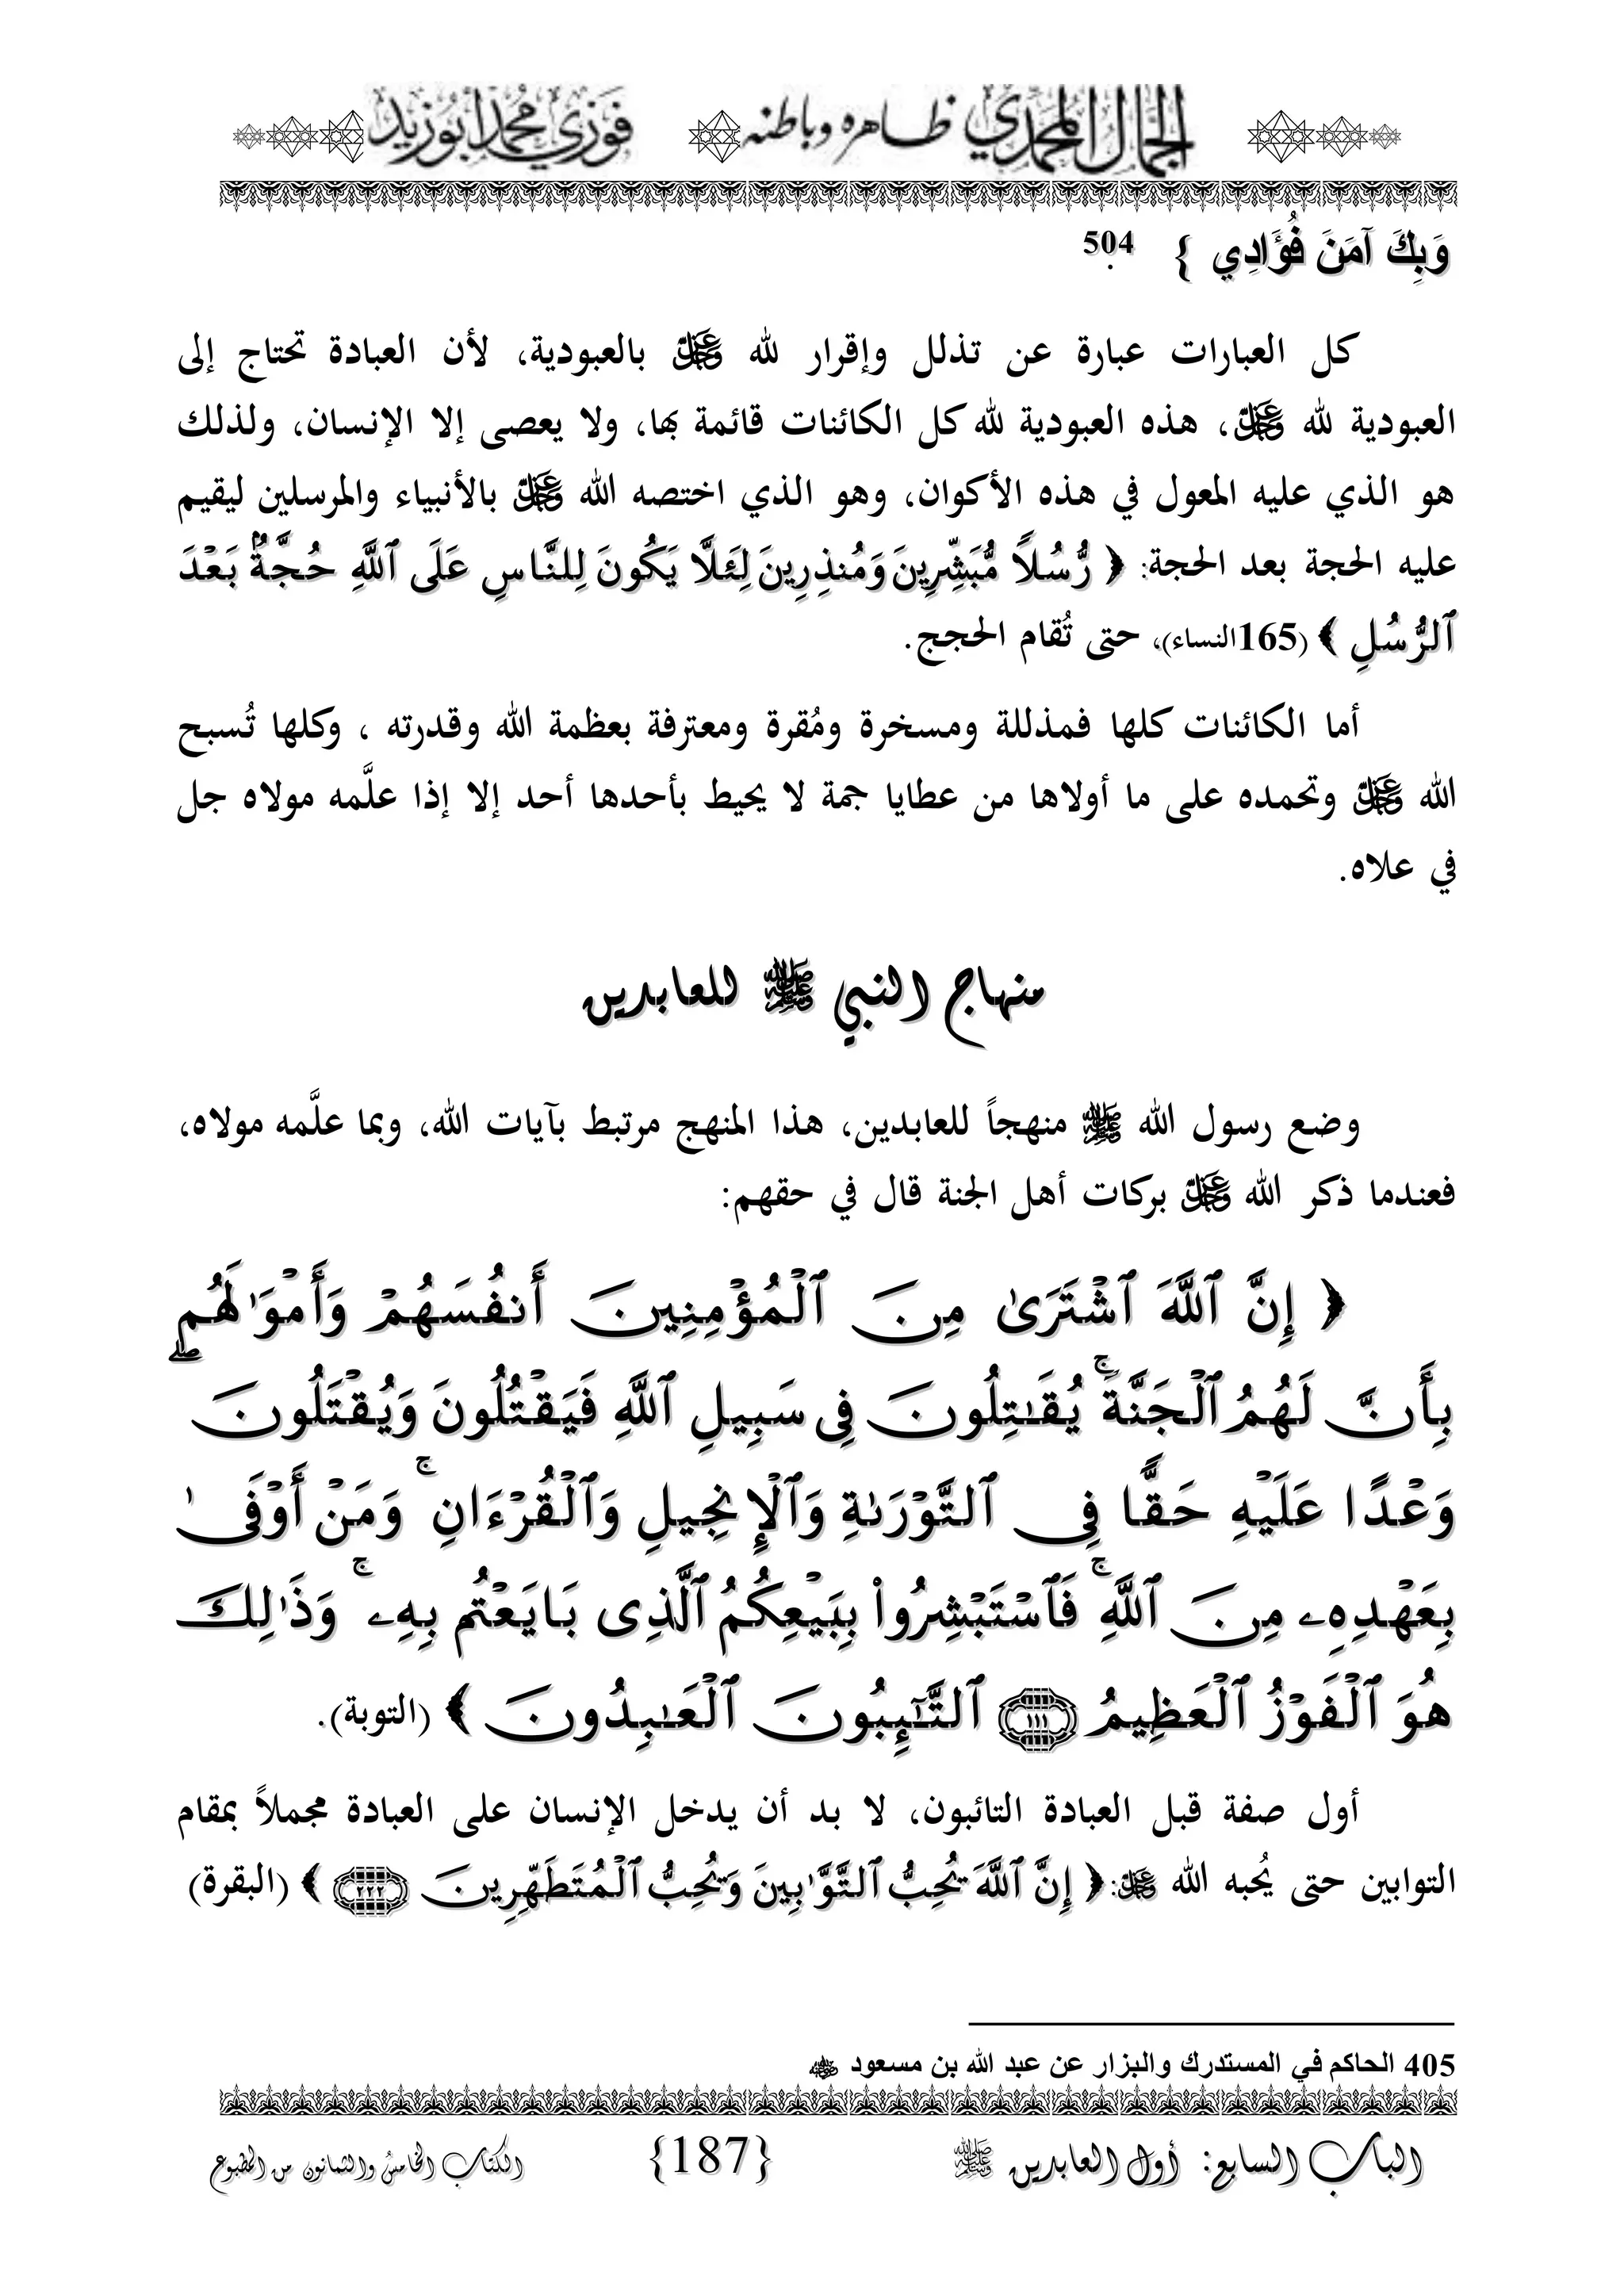 الجمال المحمدي ظاهره وباطنه فوزي محمد أبوزيد
وَبِكَ آمَنَ فُؤَادِي } 504.
كل العبارات عبارة عن تذلل وإقرار لله ﷿ بالعبودية، لأن العبادة تحتاج إلى
العبودية لله ﷿، هذه العبودية لله كل الكائنات قائمة بها، ولا يعصى إلا الإنسان، ولذلك
هو الذي عليه المعول في هذه الأكوان، وهو الذي اختصه الله ﷿ بالأنبياء والمرسلين ليقيم
عليه الحجة بعد الحجة: ﴿ رُّسُلًا مُّبَشِّرِينَ وَمُنذِرِينَ لِئَلَّا يَكُونَ لِلنَّاسِ عَلَى ٱللَّهِ حُجَّةٌۢ بَعْدَ
ٱلرُّسُلِ ﴾ (165النساء)، حتى تُقام الحجج.
أما الكائنات كلها فمذللة ومسخرة ومُقرة ومعترفة بعظمة الله وقدرته ، وكلها تُسبح
الله ﷿ وتحمده على ما أولاها من عطايا جمة لا يحيط بأحدها أحد إلا إذا علَّمه مولاه جل
في علاه.
منهاج النبي ﷺ للعابدين
وضع رسول الله ﷺ منهجاً للعابدين، هذا المنهج مرتبط بآيات الله، وبما علَّمه مولاه،
فعندما ذكر الله ﷿ بركات أهل الجنة قال في حقهم:
﴿ إِنَّ ٱللَّهَ ٱشْتَرَىٰ مِنَ ٱلْمُؤْمِنِينَ أَنفُسَهُمْ وَأَمْوَٰلَهُم
بِأَنَّ لَهُمُ ٱلْجَنَّةَ ۚ يُقَـٰتِلُونَ فِى سَبِيلِ ٱللَّهِ فَيَقْتُلُونَ وَيُقْتَلُونَ ۖ
وَعْدًا عَلَيْهِ حَقًّا فِى ٱلتَّوْرَىٰةِ وَٱلْإِنجِيلِ وَٱلْقُرْءَانِ ۚ وَمَنْ أَوْفَىٰ
بِعَهْدِهِۦ مِنَ ٱللَّهِ ۚ فَٱسْتَبْشِرُوا۟ بِبَيْعِكُمُ ٱلَّذِى بَايَعْتُم بِهِۦ ۚ وَذَٰلِكَ
هُوَ ٱلْفَوْزُ ٱلْعَظِيمُ ١١١ ٱلتَّـٰٓئِبُونَ ٱلْعَـٰبِدُونَ ﴾ (التوبة).
أول صفة قبل العبادة التائبون، لا بد أن يدخل الإنسان على العبادة مجملاً بمقام
التوابين حتى يُحبه الله ﷿: ﴿ إِنَّ ٱللَّهَ يُحِبُّ ٱلتَّوَّٰبِينَ وَيُحِبُّ ٱلْمُتَطَهِّرِينَ ٢٢٢ ﴾ (البقرة)
405 الحاكم في المستدرك والبزار عن عبد الله بن مسعود ؓ
الباب السابع: أول العابدين ﷺ {187} الكتاب الخامس والثمانون من المطبوع